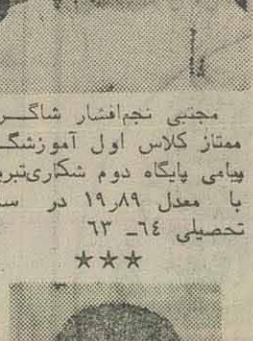 مجتبی نجم‌افشار شاگـــر
ممتاز کلاس اول آموزشگـ
پیامی پایگاه دوم شکاری‌تبریـ
با معدل ۱۹٫۸۹ در سـ
تحصیلی ٦٤ـ ٦٣
★★★